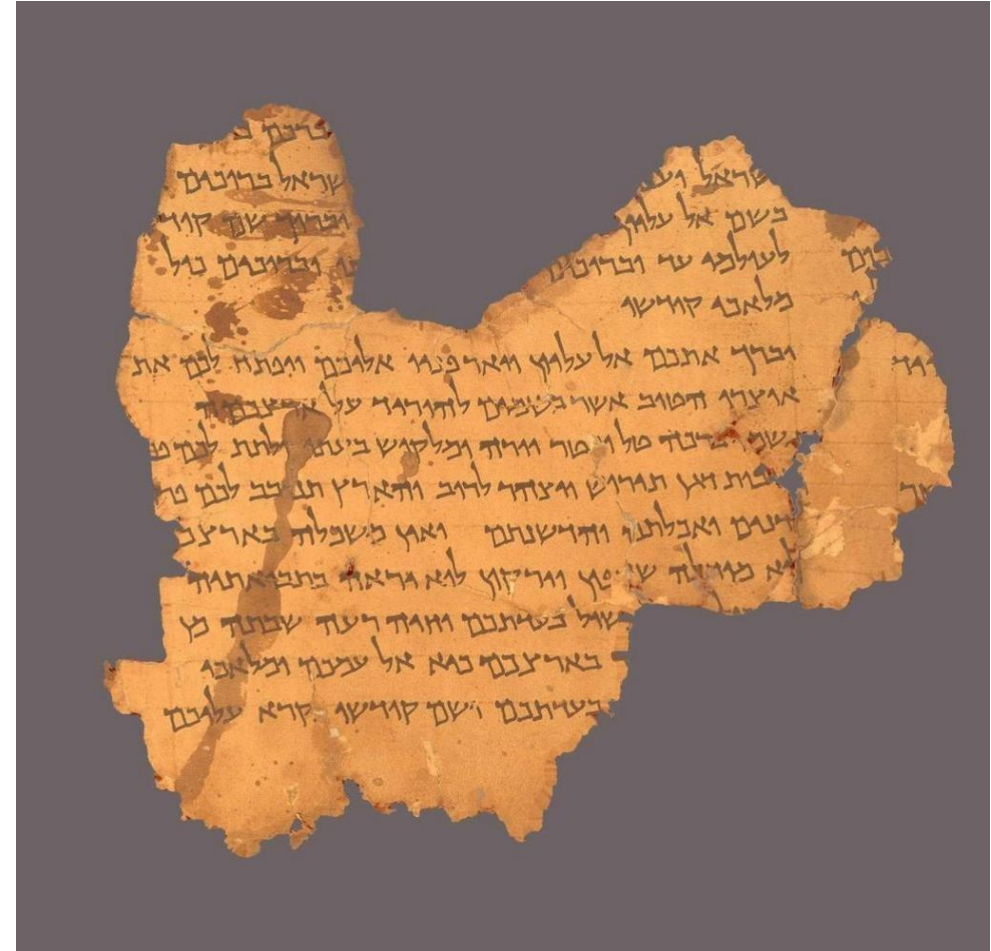 שראל ברוכים
בשם אל עליון וברוך שם קוד
לעולמי עד וברוכים וברוכים כול
מלאכי קודשו
יברך אתכם אל עליון ויאר פניו אליכם ויפתח לכם את
אוצרו הטוב אשר בשמים להוריד על ארצכמה
גשמי ברכה טל ומטר יורה ומלקוש בעתו ולתת לכם
תנובות דגן תירוש ויצהר לרוב והארץ תנובב לכם פר
דנים ואכלתם והדשנתם ואין משכלה בארצכ
לא מוחלה שדפון וירקון לוא יראה בתבואתיה
שול בעדתכם וחיה רעה שבתה מן
בארצכם כיא אל עמכם ומלאכי
בעדתכם ושם קודשו נקרא עליכם